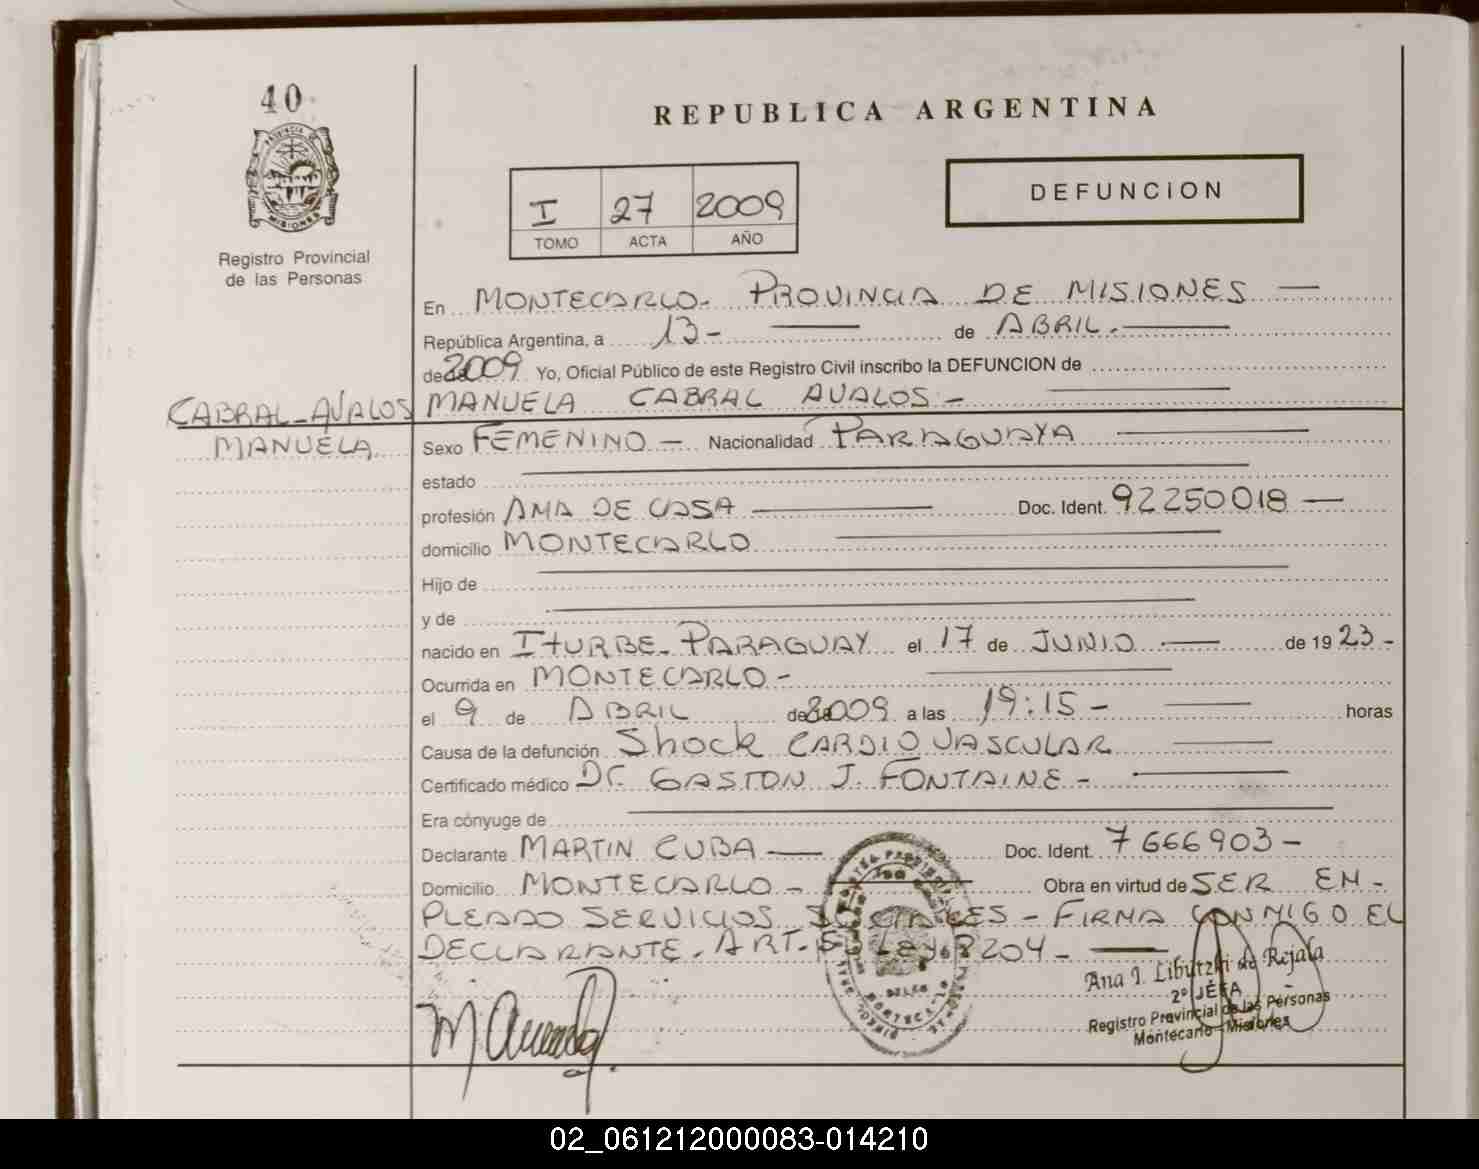 40
REPUBLICA ARGENTINA
PROVINCIA DE
MISIONES
Registro Provincial
de las Personas
I 27 2009
TOMO ACTA AÑO
DEFUNCION
En MONTECARLO. PROVINCIA DE MISIONES —
República Argentina, a 13- — de ABRIL. —
de 2009 Yo, Oficial Público de este Registro Civil inscribo la DEFUNCION de
CABRAL-AVALOS
MANUELA
MANUELA CABRAL AVALOS - —
Sexo FEMENINO - Nacionalidad PARAGUAYA —
estado —
profesión AMA DE CASA — Doc. Ident. 92250018 —
domicilio MONTECARLO —
Hijo de —
y de —
nacido en ITURBE. PARAGUAY el 17 de JUNIO — de 1923-
Ocurrida en MONTECARLO - —
el 9 de ABRIL de 2009 a las 19:15 - — horas
Causa de la defunción Shock CARDIO VASCULAR —
Certificado médico Dr. GASTON J. FONTAINE - —
Era cónyuge de —
Declarante MARTIN CUBA — Doc. Ident. 7666903 -
Domicilio MONTECARLO - — Obra en virtud de SER EM-
PLEADO SERVICIOS SOCIALES - FIRMA CONMIGO EL
DECLARANTE. ART. LEY 8204 - —
Ana I. Libutzki de Rejala
2º JEFA
Registro Provincial de las Personas
Montecarlo - Misiones
02_061212000083-014210